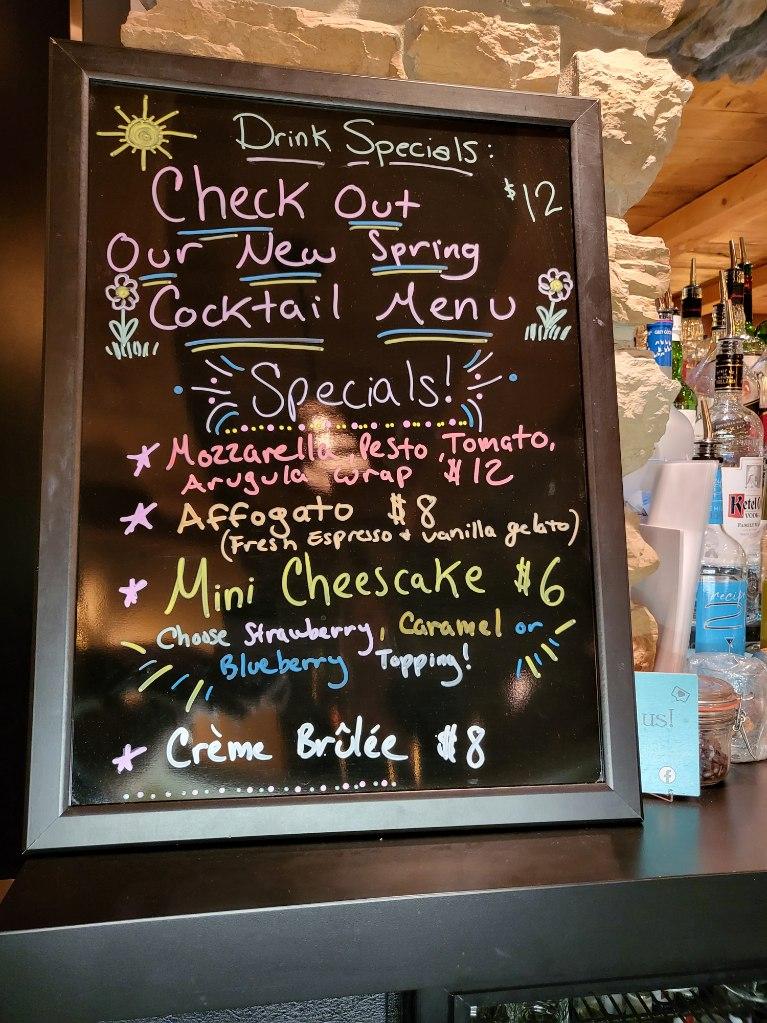 Drink Specials:
Check Out $12
Our New Spring
Cocktail Menu
Specials!
* Mozzarella, Pesto, Tomato,
Arugula wrap $12
* Affogato $8
(Fresh Espresso + vanilla gelato)
* Mini Cheescake $6
Choose Strawberry, Caramel or
Blueberry Topping!
* Crème Brûlée $8
Ketel
us!